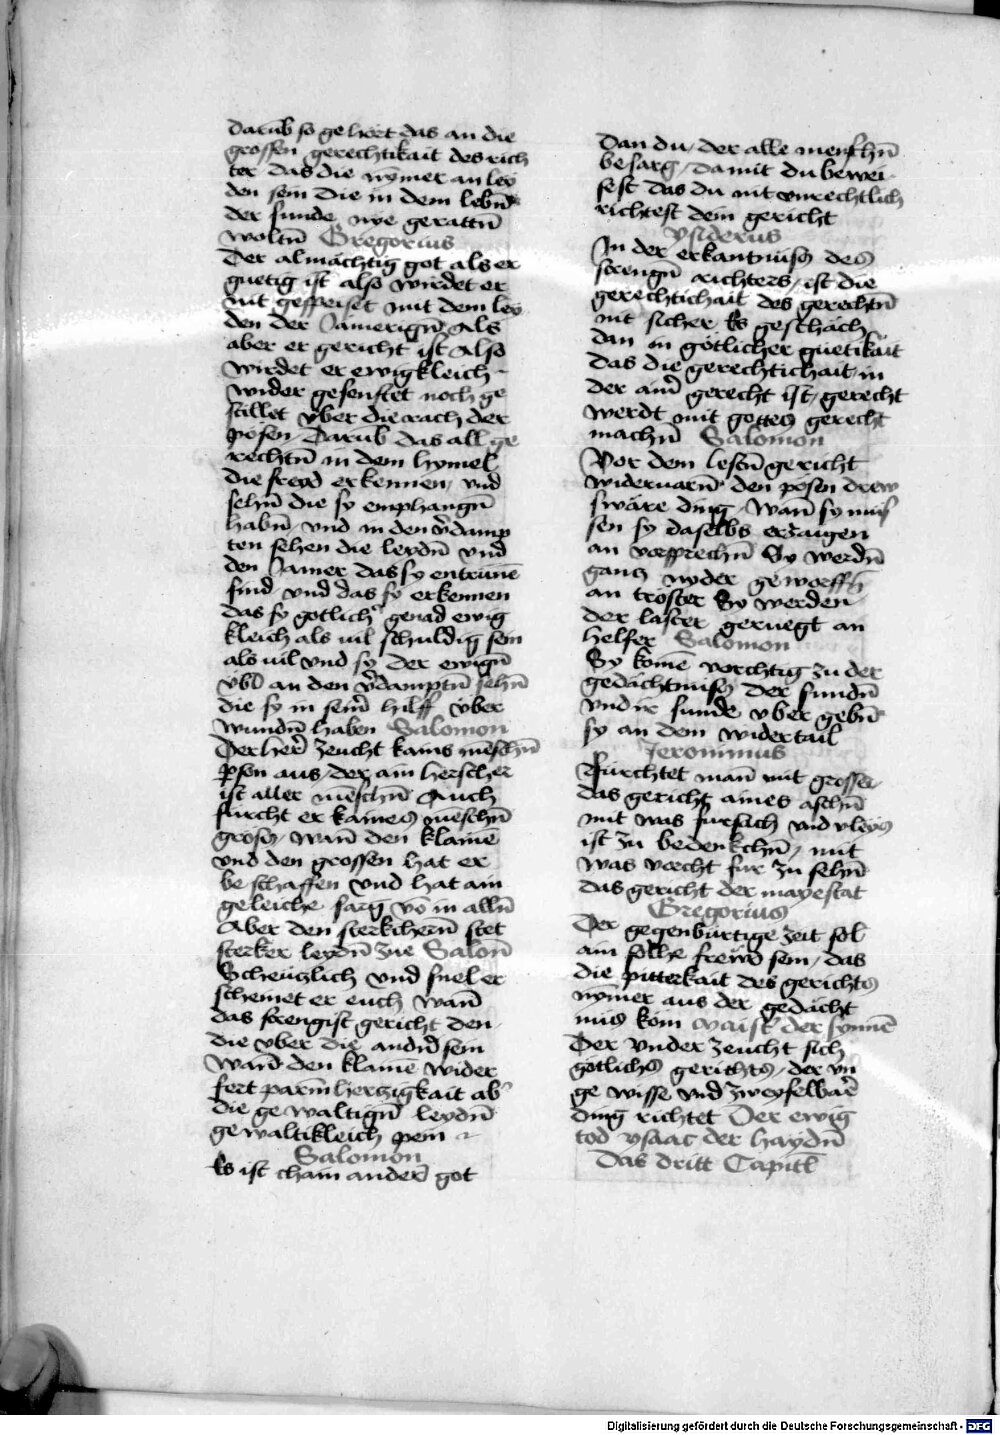 darub so gehört das an die
grossen gerechtikait des rich
ter das die nymer an ley
den sein die in dem lebn̄
der sunde nye gerattn̄
woltn̄ Gregorius
Der almächtig got als er
guetig ist also wirdet er
nit gespeiset mit dem ley
den der Jamerign̄ Als
aber er gericht ist Also
wirdet er ewigkleich
wider gesenftet noch ge
stillet vber die rach der
posen Darub das all ge
rechtn̄ in dem hymel
die frewd erkennen vnd
sehn̄ die sy emphangn̄
habn̄ vnd in den v̄damp
ten sehen die leydn̄ vnd
den Jamer das sy entrūnē
sind vnd das sy erkennen
das sy gotlich' genad ewig
kleich als uil schuldig sein
als uil vnd sy der ewign̄
vbl an den v̄damptn̄ sehn̄
die sy in seinr̄ hilff vber
wundn̄ haben Salomon
Der herr̄ zeucht kains mēschn̄
psen aus der ain herscher
ist aller mēschn̄ Auch
fürcht er kaines mēschn̄
gross wan̄ den klainē
vnd den grossen hat er
beschaffen vnd hat ain
geleiche sarg vō in alln̄
Aber den sterkihern̄ stet
sterker leydn̄ zue Salon̄
Scheüczlich vnd snel er
scheinet er euch wan̄
das strengist gericht den
die vber die andn̄ sein
wan̄ den klainē wider
fert parmherczigkait ab'
die gewaltign̄ leydn̄
gewaltikleich pein
Salomon
Es ist chain ander̄ got
Dan du, der alle menschn̄
besarg, damit du bewei
sest das du nit vnrechtlich
richtest dein gericht
ysiderus
In der erkantnüss des
strengn̄ richters, ist die
gerechtichait des gerechtn̄
nit sicher Es geschäch
dan in götlicher güetikait
das die gerechtichait in
der ainr̄ gerecht ist, gerecht
werdt mit gottes gerecht
machn̄ Salomon
Vor dem lestn̄ gericht
widerūarn̄ den posen drew
swäre ding, Wan̄ sy müs
sen sy daselbs erzaigen
an vorsprechn̄ Sy werdn̄
gancz nyder geworffn̄
an troster Sy werden
der laster geruegt an
helfer Salomon
Sy komē vorchtig zu der
gedächtnüss der sundn̄
vnd ir sunde vbergebn̄
sy an dem widertail
Jeronimus
Fürchtet man mit grosser
das gericht aines aschn̄
mit was fursich vnd vleys
ist zu bedenkchn̄, mit
was vorcht fur zu sehn̄
das gericht der mayestat
Gregorius
Der gegenbürtige zeit sol
ain solhe frewd sein, das
die pitterkait des gerichts
nymer aus der gedächt
nüs kōm Maist' der synnē
Der vnder zeucht sich
götlichs gerichts, der vn
gewisse vnd zweyfelbar̄
ding richtet Der ewig
tod ysaac der haydn̄
Das dritt Capitl̄
Digitalisierung gefördert durch die Deutsche Forschungsgemeinschaft - DFG